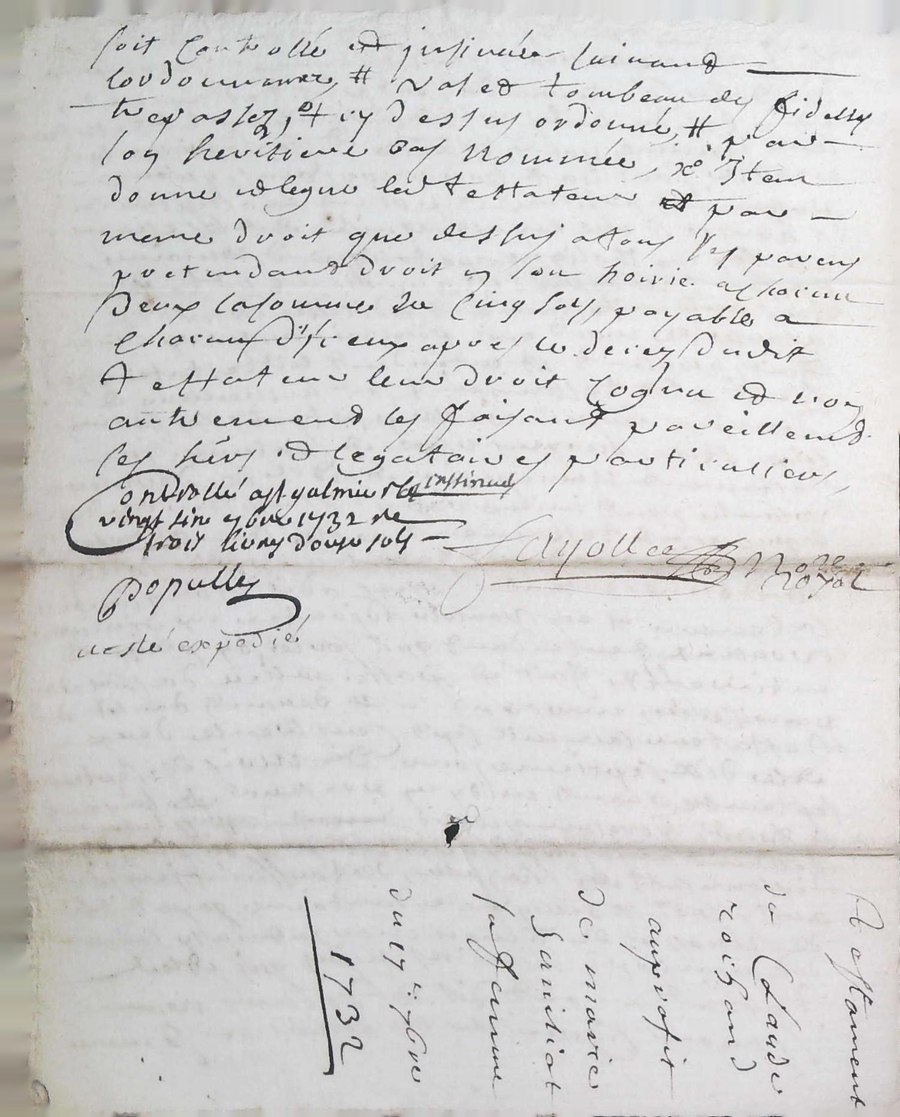 soit Controllé et insinuée suivant
lordonnance, # vas et tombeau des fideles
trepassez, + cy dessus ordonné, # par
son heritiere bas nommée, xo Item
donne et legue led testateur et par
meme droit que dessus a tous ses parens
pretendant droit en son hoirie a chacun
deux la somme de cinq sols, payable a
chacun d'iceux apres le decez dudit
testateur leur droit cognu et non
autrement les faisant pareillement
ses hers et legataires particuliers,
Controllé a st galmier et insinué
vingt six 7bre 1732 re
trois livres douze sols
Fayolle nore royal
Populle
a esté expedié
Testament
de Claude
au profit
de marie
sa femme
du 17e 7bre
1732